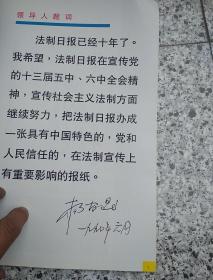 领导人题词
法制日报已经十年了。
我希望，法制日报在宣传党
的十三届五中、六中全会精
神，宣传社会主义法制方面
继续努力，把法制日报办成
一张具有中国特色的，党和
人民信任的，在法制宣传上
有重要影响的报纸。
一九九〇年六月